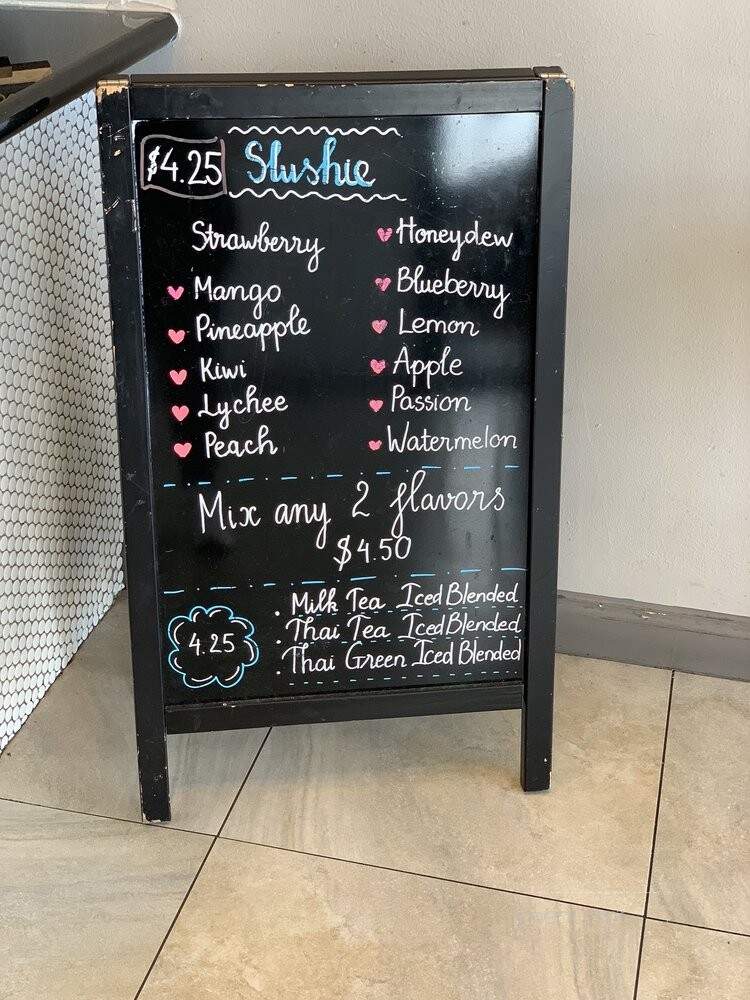 $4.25 Slushie
Strawberry
Mango
Pineapple
Kiwi
Lychee
Peach
Honeydew
Blueberry
Lemon
Apple
Passion
Watermelon
Mix any 2 flavors
$4.50
4.25
. Milk Tea Iced Blended
. Thai Tea Iced Blended
. Thai Green Iced Blended